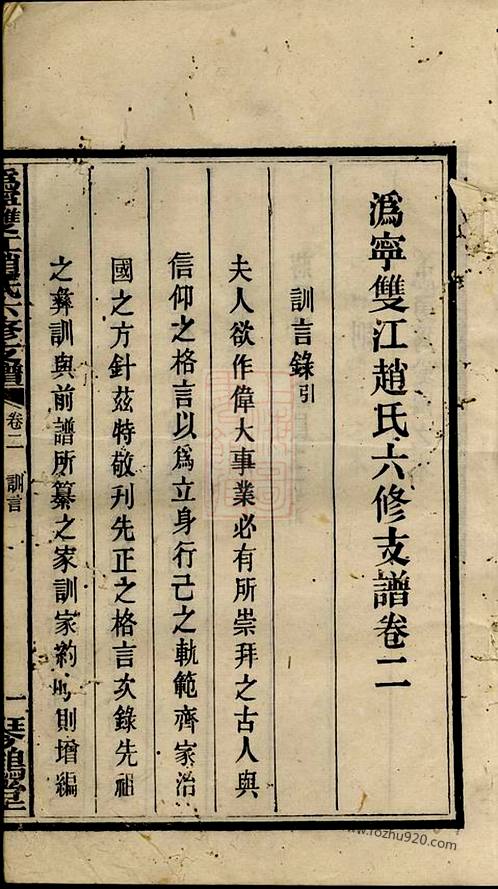 溈寧雙江趙氏六修支譜卷二
訓言錄引
夫人欲作偉大事業必有所崇拜之古人與
信仰之格言以爲立身行己之軌範齊家治
國之方針茲特敬刋先正之格言次錄先祖
之彝訓與前譜所纂之家訓家約 則增編
溈寧雙江趙氏六修支譜
卷二
訓言
一
琴鶴堂
www.rozhu920.com